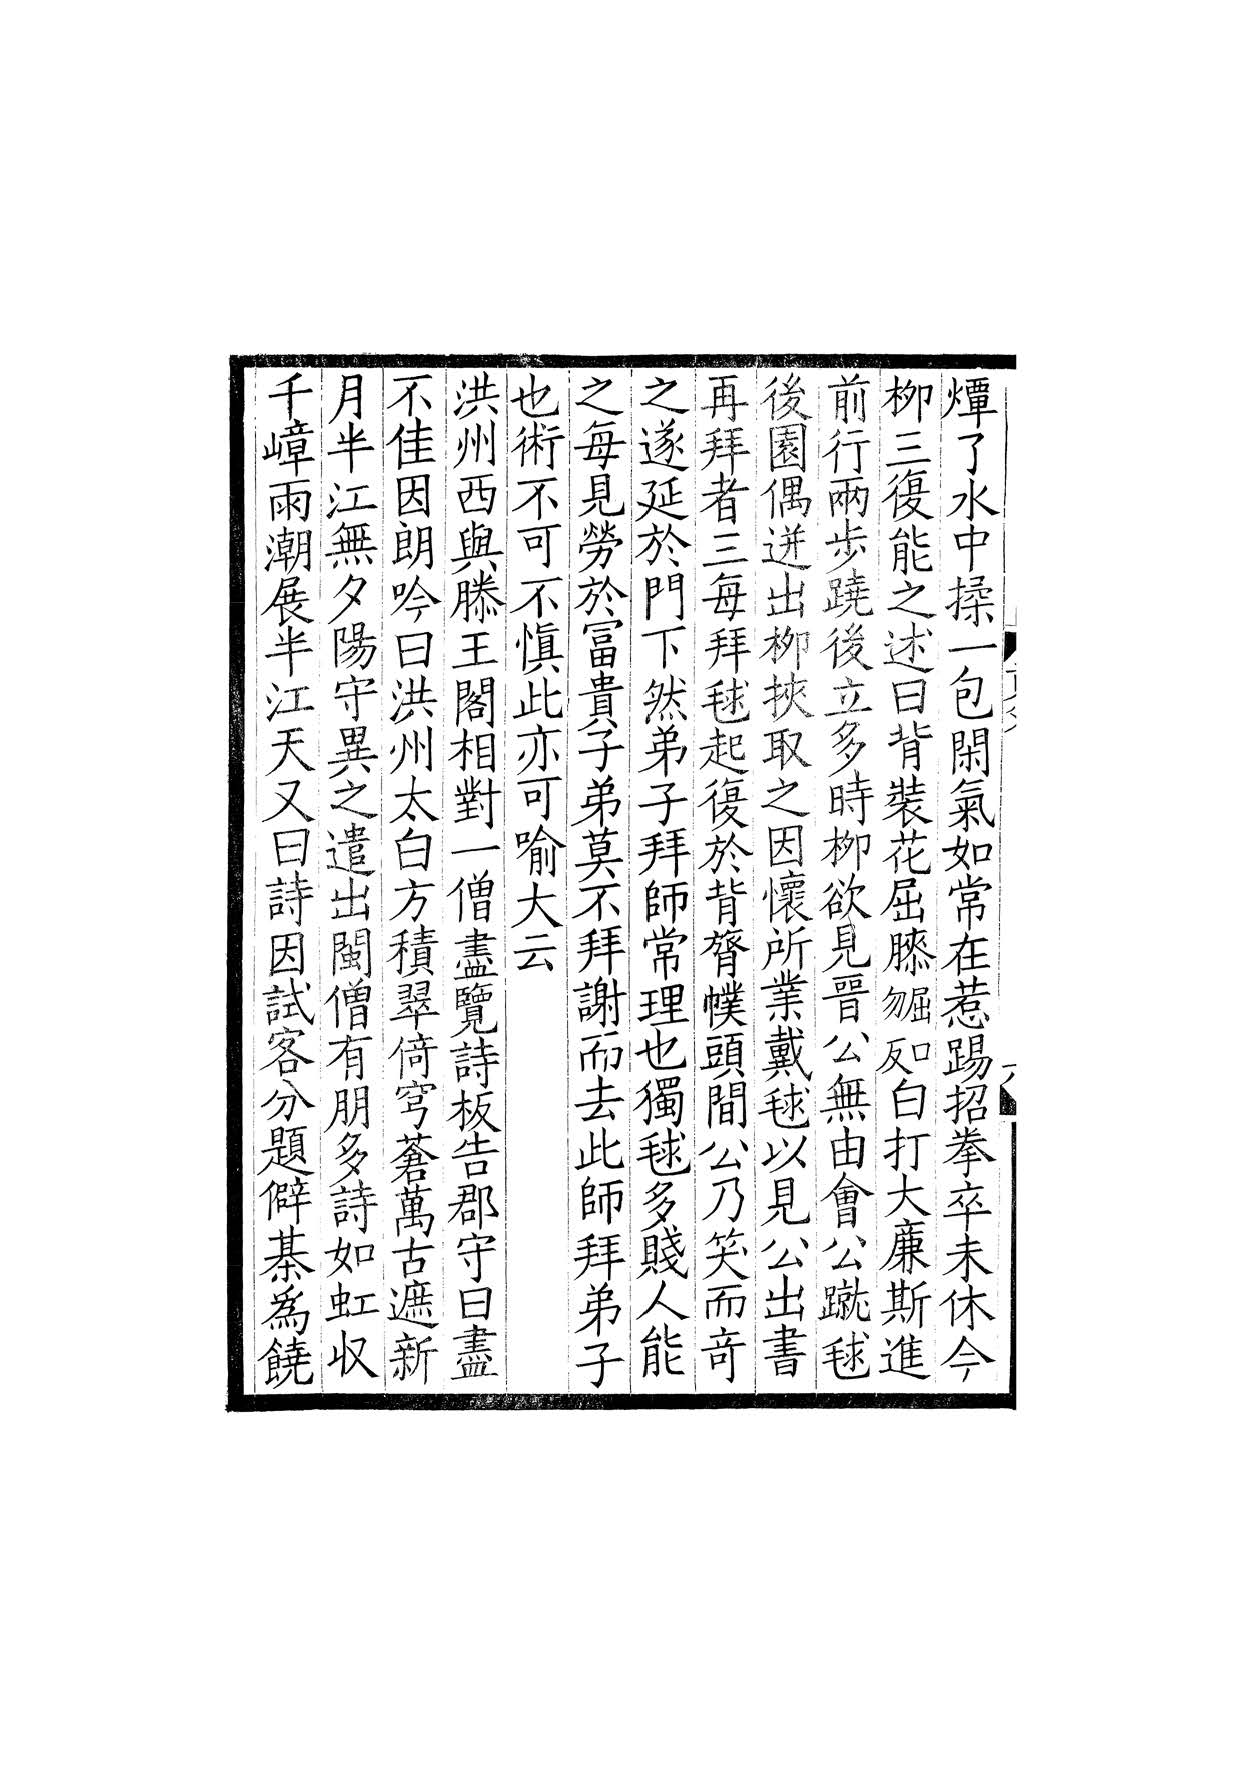 燂了水中揉一包閑氣如常在惹踢招拳卒未休今
柳三復能之述曰背裝花屈膝勿屈反口白打大廉斯進
前行兩步蹺後立多時柳欲見晉公無由會公蹴毬
後園偶迸出柳挾取之因懷所業戴毬以見公出書
再拜者三每拜毬起復於背膂幞頭間公乃笑而竒
之遂延於門下然弟子拜師常理也獨毬多賤人能
之每見勞於冨貴子弟莫不拜謝而去此師拜弟子
也術不可不愼此亦可喻大云
洪州西與滕王閣相對一僧盡覽詩板告郡守曰盡
不佳因朗吟曰洪州太白方積翠倚穹蒼萬古遮新
月半江無夕陽守異之遣出閩僧有朋多詩如虹収
千嶂雨潮展半江天又曰詩因試客分題僻棊爲饒